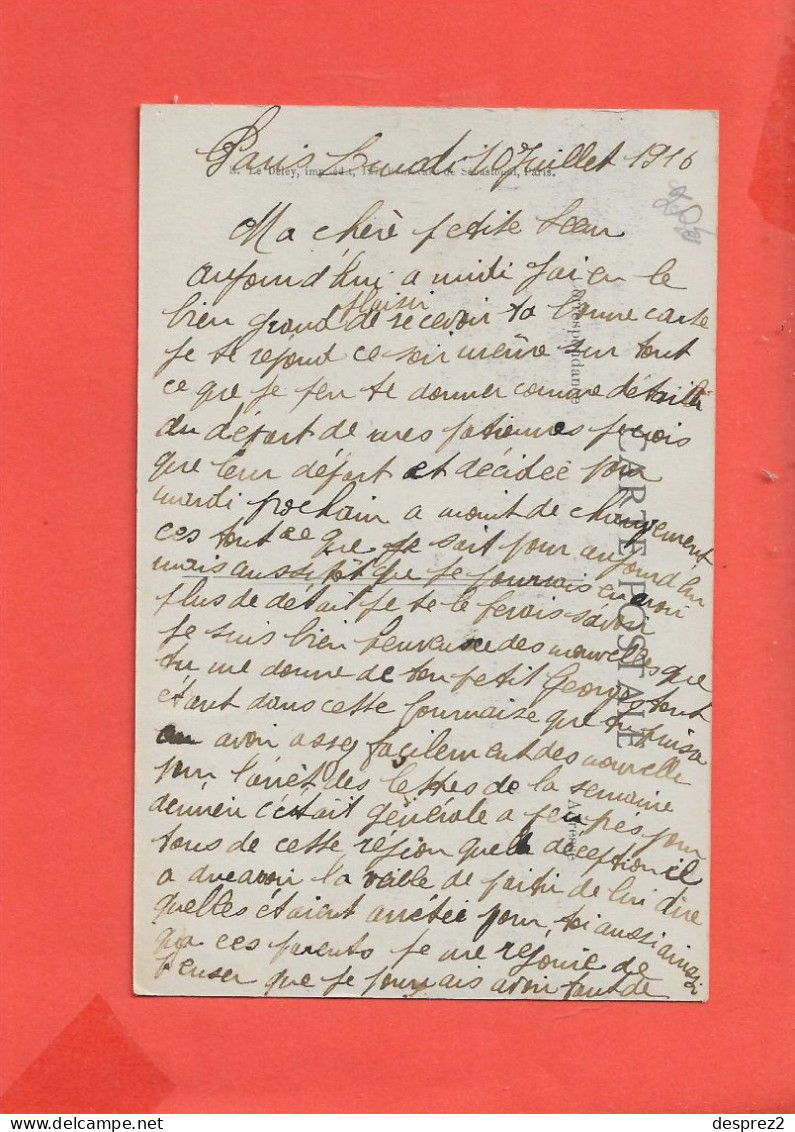 Paris Lundi 10 Juillet 1916
E. Le Deley, imp. édit., Paris.
Ma chère petite
aujourd'hui a midi J'ai eu le
bien grand plaisir de recevoir ta bonne carte
Je te répond ce soir même sur tout
ce que je peu te donner comme détaille
du départ de mes je crois
que leur départ et décidée pour
mardi prochain a moint de changement
ces tout ce que je sait pour aujourd'hu
mais aussitôt que je pourrais en avoir
plus de détail je te le ferais savoir
Je suis bien heureuse des nouvelles que
tu me donne de ton petit Georges tout
étant dans cette fournaise que tu puisse
avoir assez facilement des nouvelle
pour l'arrêt des lettres de la semaine
dernière c'était générale a peu près pour
tous de cette région quelle déception il
a du avoir la veille de partir de lui dire
quelles étaient arrêtée pour toi aussi ainsi
qu'a ces parents je me rejouie de
penser que je pourrais avoir tant de
CARTE POSTALE
Correspondance
Adresse
delcampe.net
desprez2